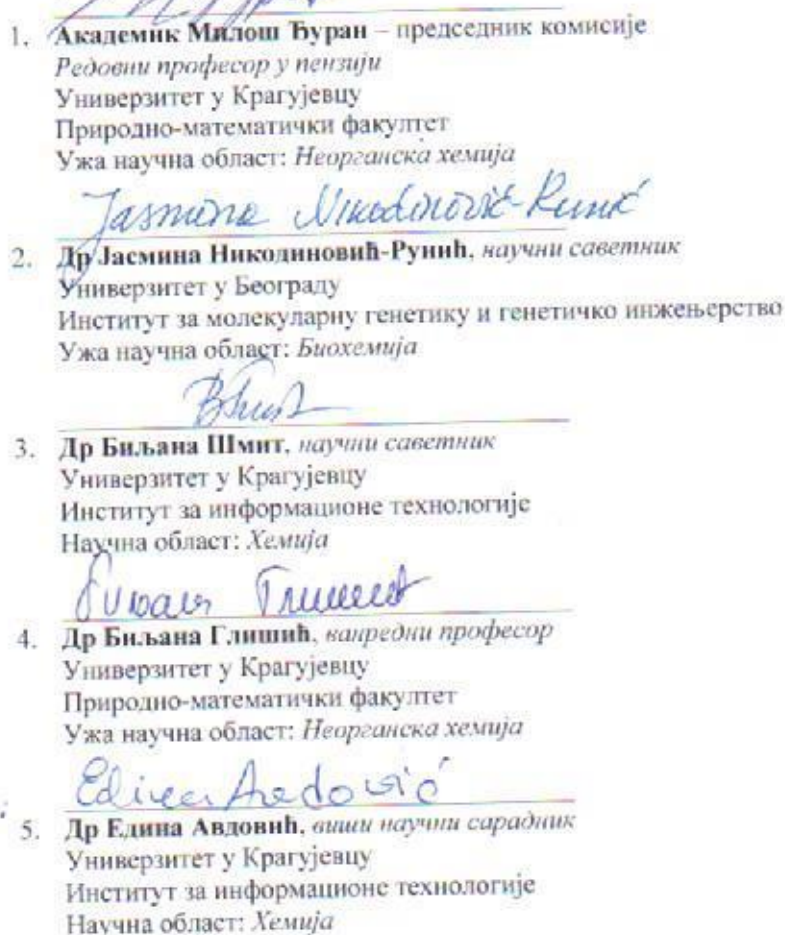 1. Академик Милош Ђуран – председник комисије
Редовни професор у пензији
Универзитет у Крагујевцу
Природно-математички факултет
Ужа научна област: Неорганска хемија
Jasmina Nikodinović-Runić
2. Др Јасмина Никодиновић-Рунић, научни саветник
Универзитет у Београду
Институт за молекуларну генетику и генетичко инжењерство
Ужа научна област: Биохемија
3. Др Биљана Шмит, научни саветник
Универзитет у Крагујевцу
Институт за информационе технологије
Научна област: Хемија
4. Др Биљана Глишић, ванредни професор
Универзитет у Крагујевцу
Природно-математички факултет
Ужа научна област: Неорганска хемија
Edina Avdović
5. Др Едина Авдовић, виши научни сарадник
Универзитет у Крагујевцу
Институт за информационе технологије
Научна област: Хемија